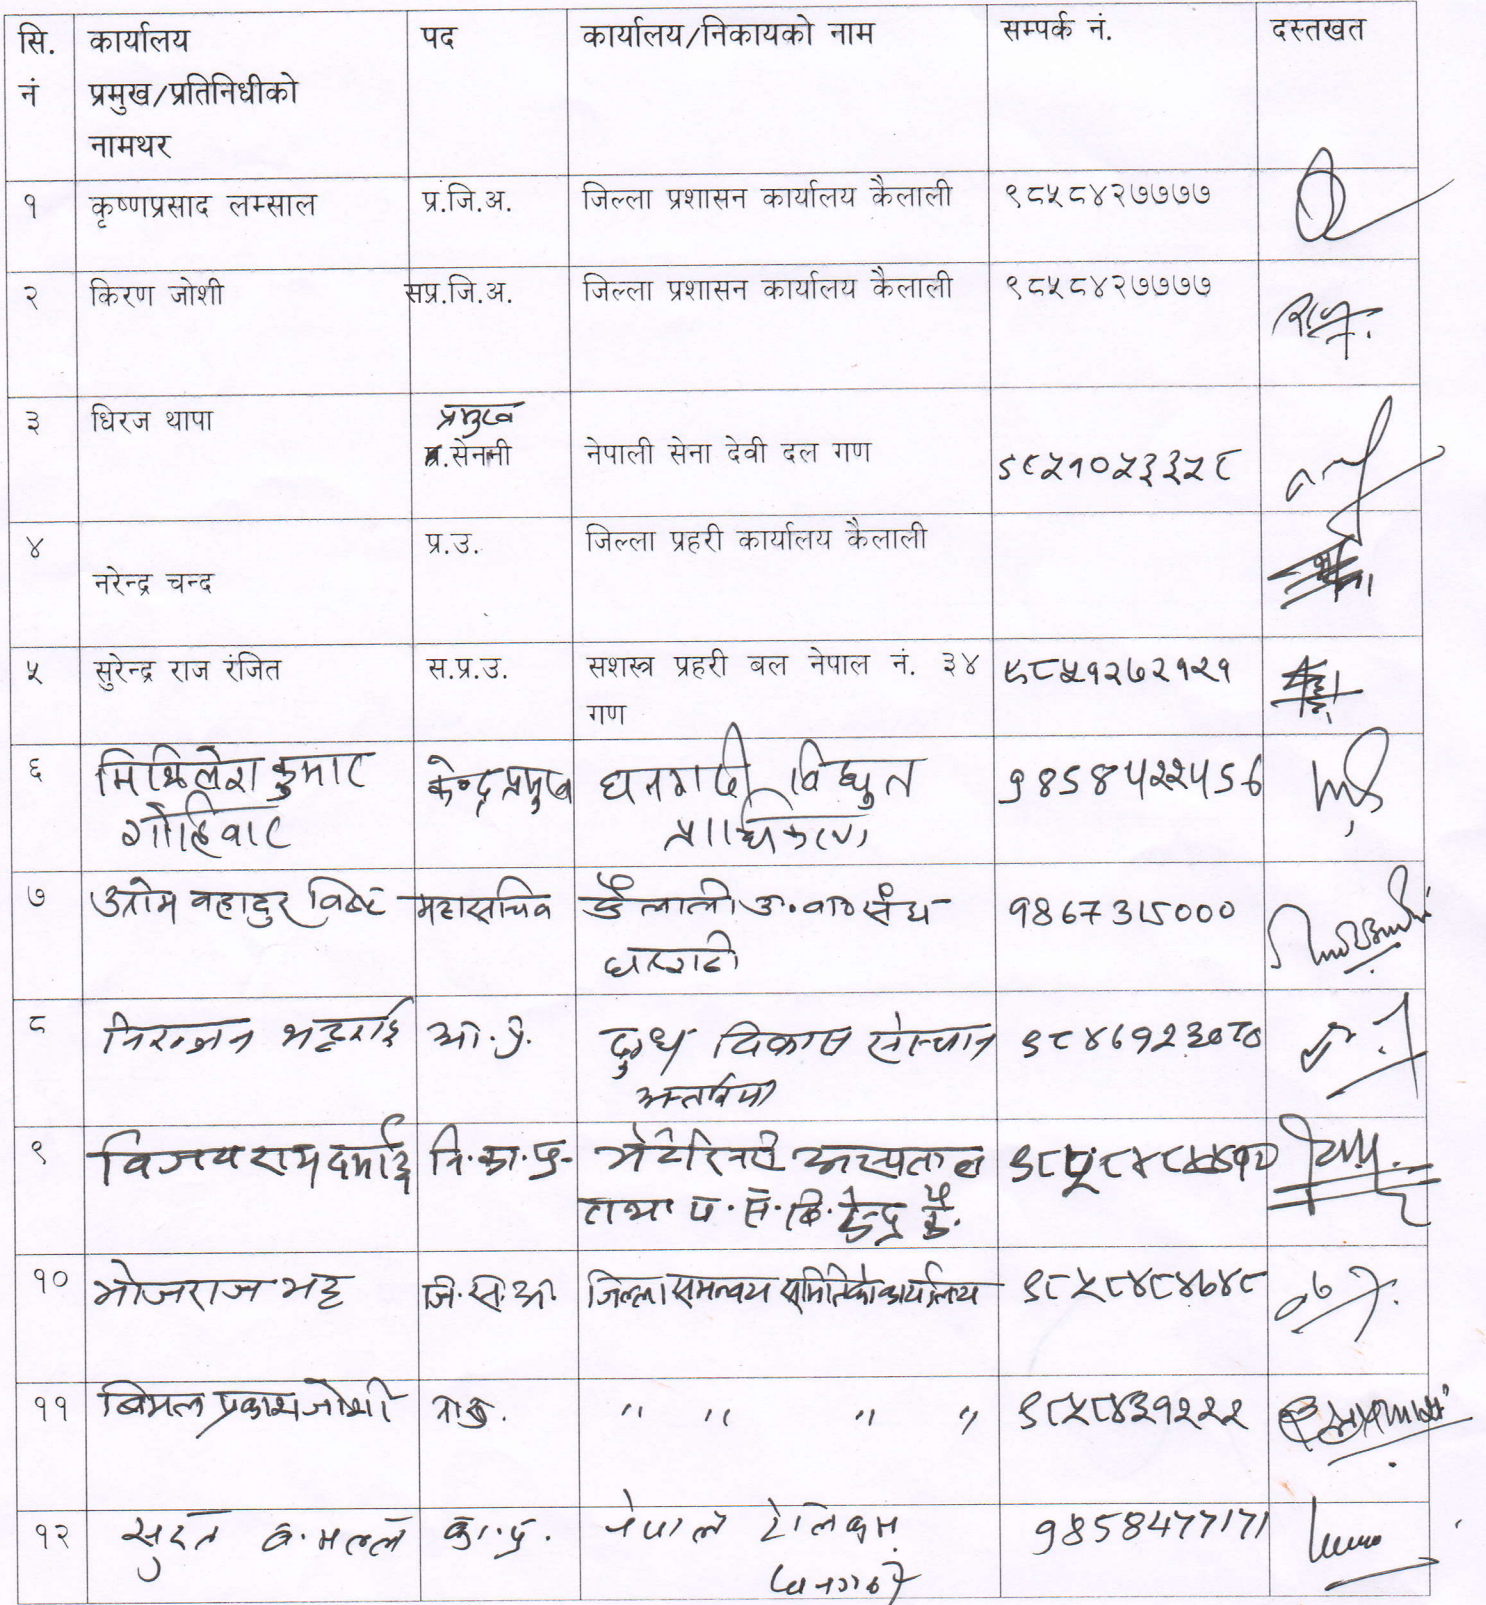 सि. नं कार्यालय प्रमुख/प्रतिनिधीको नामथर पद कार्यालय/निकायको नाम सम्पर्क नं. दस्तखत
१ कृष्णप्रसाद लम्साल प्र.जि.अ. जिल्ला प्रशासन कार्यालय कैलाली ९८५८४२७७७७
२ किरण जोशी सप्र.जि.अ. जिल्ला प्रशासन कार्यालय कैलाली ९८५८४२७७७७
३ धिरज थापा प्रमुख सेनानी नेपाली सेना देवी दल गण ९८५१०५३३५८
४ नरेन्द्र चन्द प्र.उ. जिल्ला प्रहरी कार्यालय कैलाली
५ सुरेन्द्र राज रंजित स.प्र.उ. सशस्त्र प्रहरी बल नेपाल नं. ३४ गण ९८५१२७२१२१
६ मिथिलेश कुमार केन्द्र प्रमुख धनगढी विद्युत प्राधिकरण
७ बहादुर विष्ट महासचिव कैलाली उ.वा.संघ धनगढी 9867315000
८ निरन्जन भट्टराई आ.प्र. दुग्ध विकास संस्थान अत्तरिया
९ विजय राम दर्माई नि.का.प्र. भेटेरिनरी अस्पताल तथा प.से.बि.केन्द्र कै.
१० भोजराज भट्ट जि.स.अ. जिल्ला समन्वय समितिको कार्यालय ९८५८४८४७४८
११ बिमल प्रकाश जोशी " " " " ९८५८४३१२२२
१२ ब. मल्ल का.प्र. नेपाल टेलिकम धनगढी 9858477171